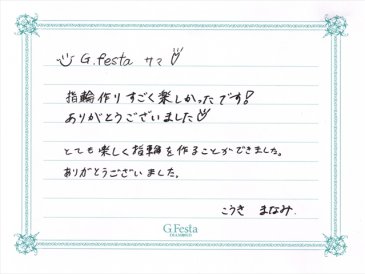 G.festa サマ
指輪作りすごく楽しかったです!
ありがとうございました
とても楽しく指輪を作ることができました。
ありがとうございました。
こうき まなみ
G.Festa